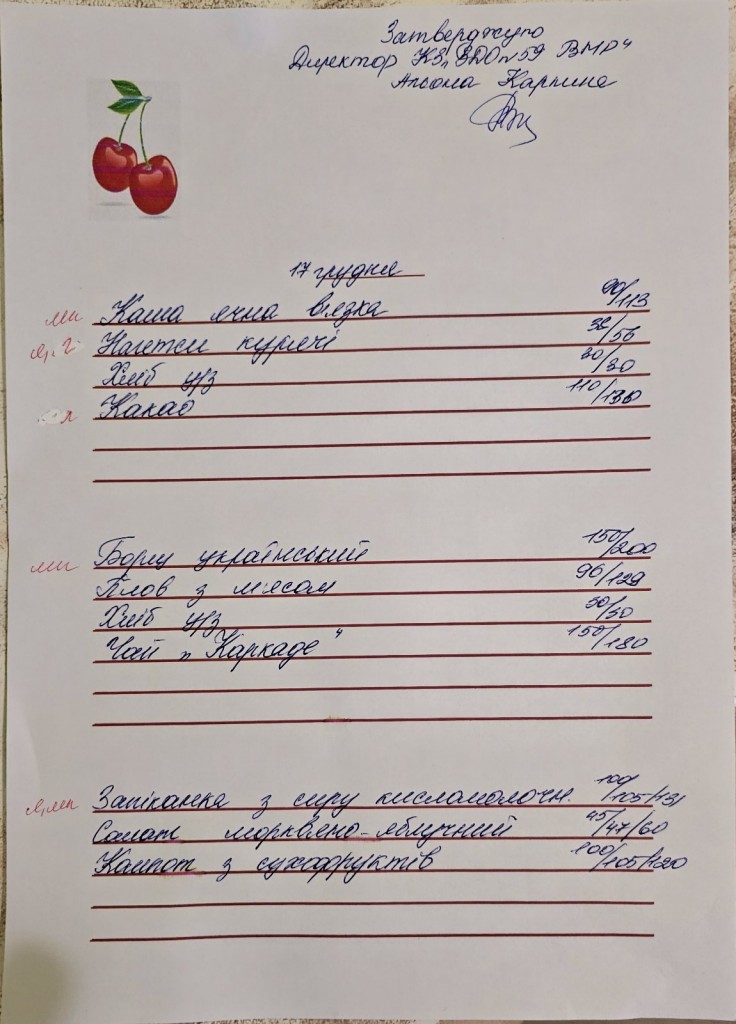 Затверджую
Директор КЗ „ЗДО №59 ВМР“
Альона Карпине
17 грудня
мп Каша ячна в'язка 90/113
я, г Нагетси курячі 38/56
Хліб ц/з 30/30
л Какао 110/130
мп Борщ український 150/200
Плов з м'ясом 96/129
Хліб ц/з 50/50
Чай „Каркаде“ 150/180
я,мп Запіканка з сиру кисломолочн. 100/105/131
Салат морквяно-яблучний 45/47/60
Компот з сухофруктів 100/105/120